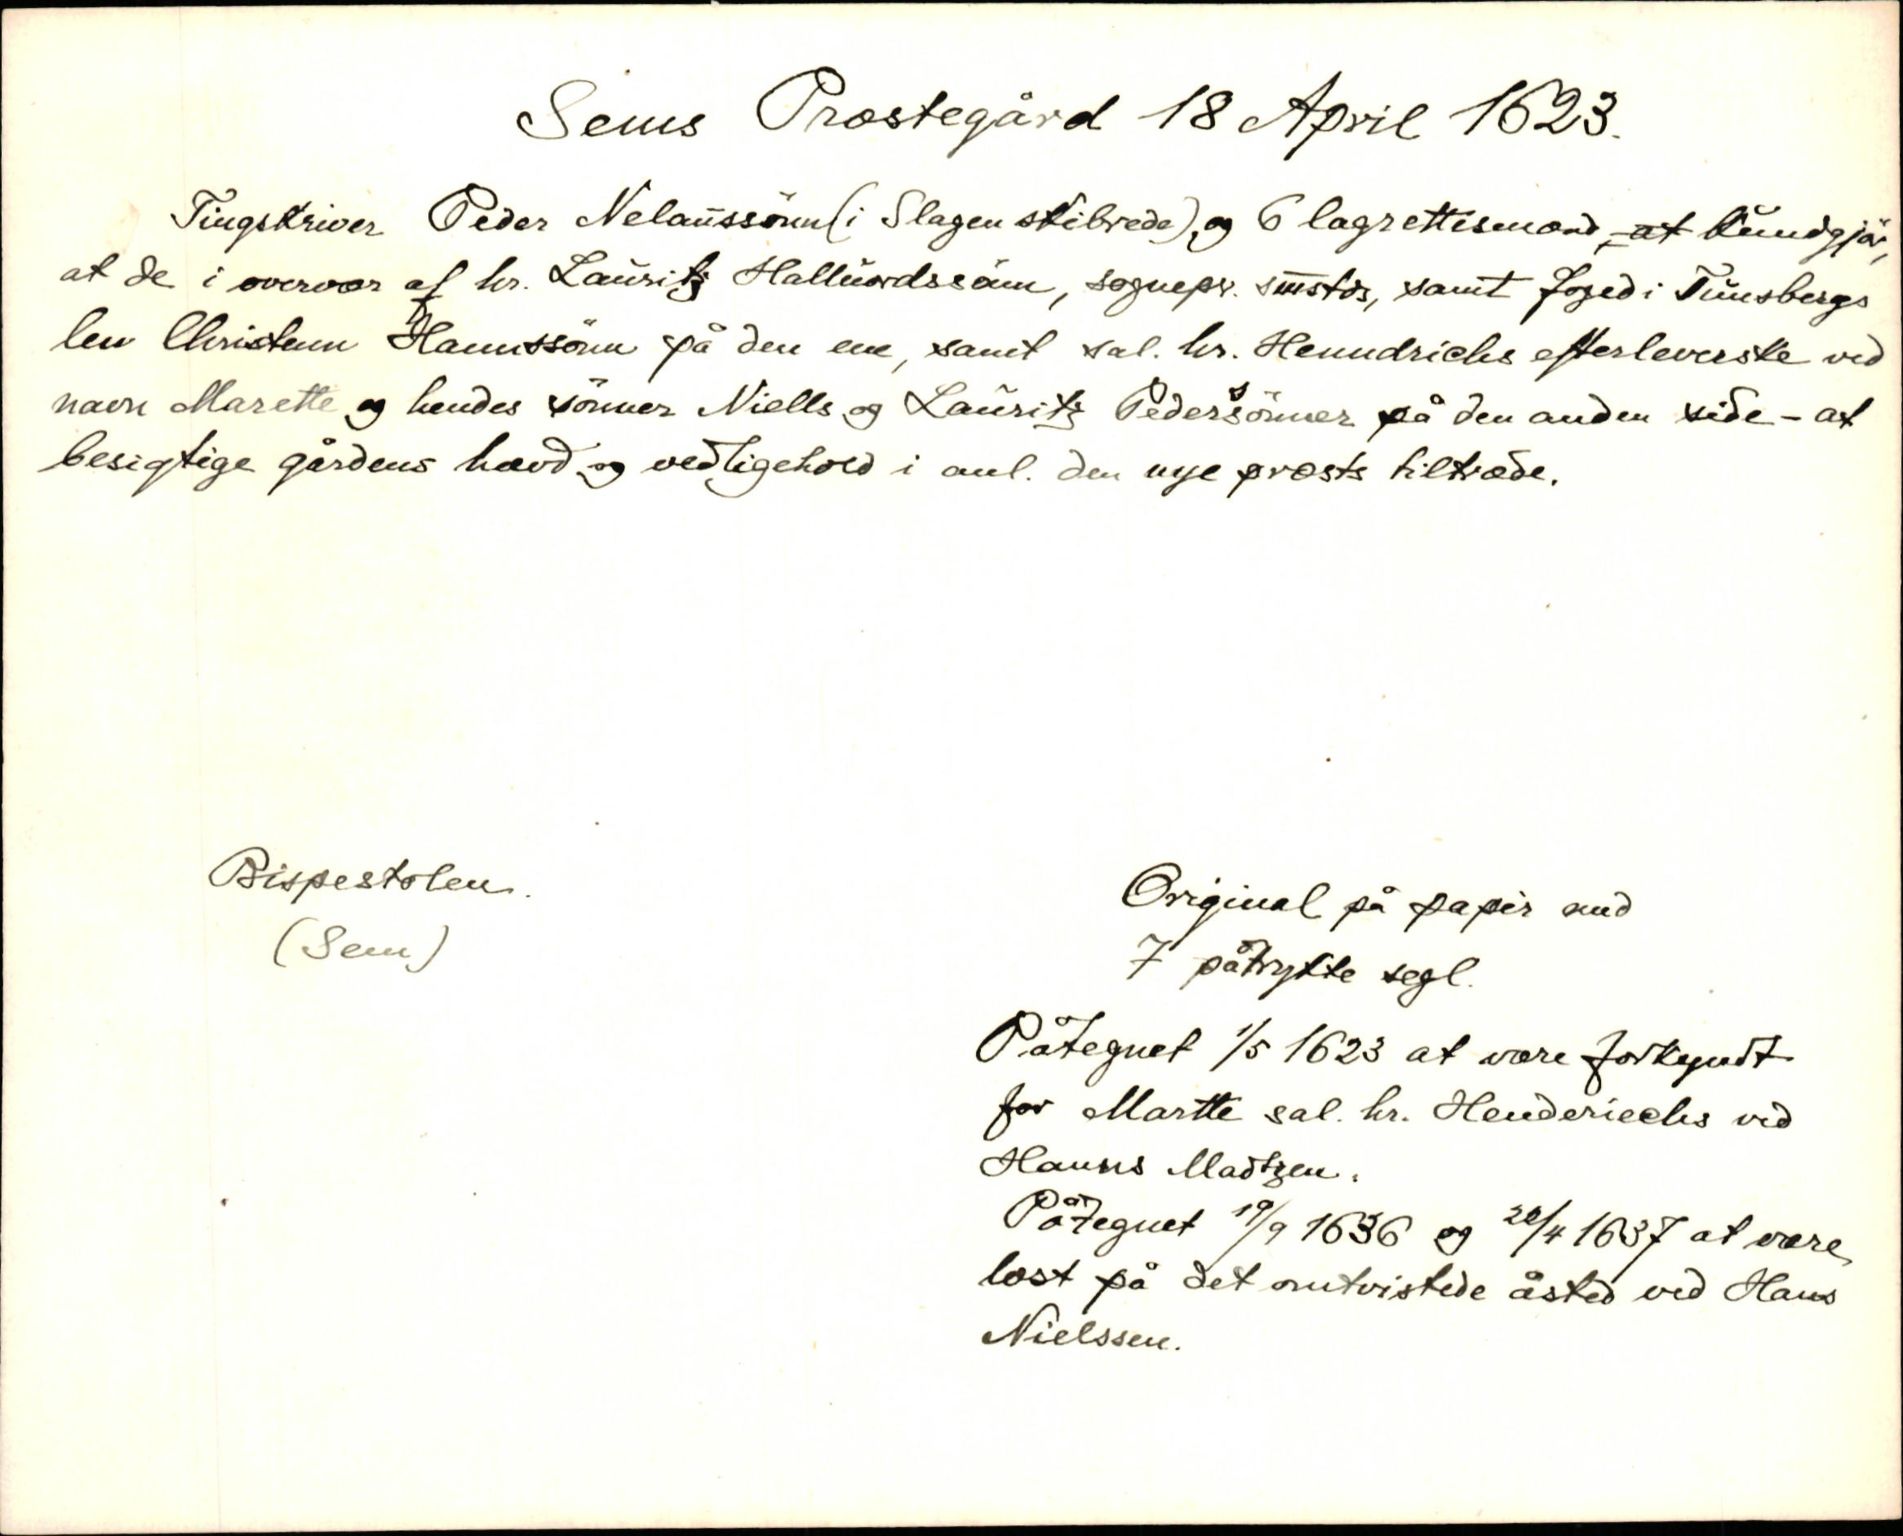 Sems Præstegård 18 April 1623.
Tingskriver Peder Nelaussönn (i Slagen skibrede), og 6 lagrettismænd, – at kundgjör,
at de i overvær af hr. Lauritz Halluordssönn, sognepr. smstds, samt foged i Tunsbergs
len Christenn Hannssönn på den ene, samt sal. hr. Henndrichs efterleverske ved
navn Marette og hendes sönner Niells og Lauritz Pederssönner på den anden side – at
besigtige gårdens hævd og vedligehold i anl. den nye præsts tiltræde.
Bispestolen.
(Sem)
Original på papir med
7 påtrykte segl.
Påtegnet 1/5 1623 at være forkyndt
for Martte sal. hr. Henderiechs ved
Hanns Madtzen.
Påtegnet 19/9 1636 og 26/4 1637 at være
læst på det omtvistede åsted ved Hans
Nielssen.